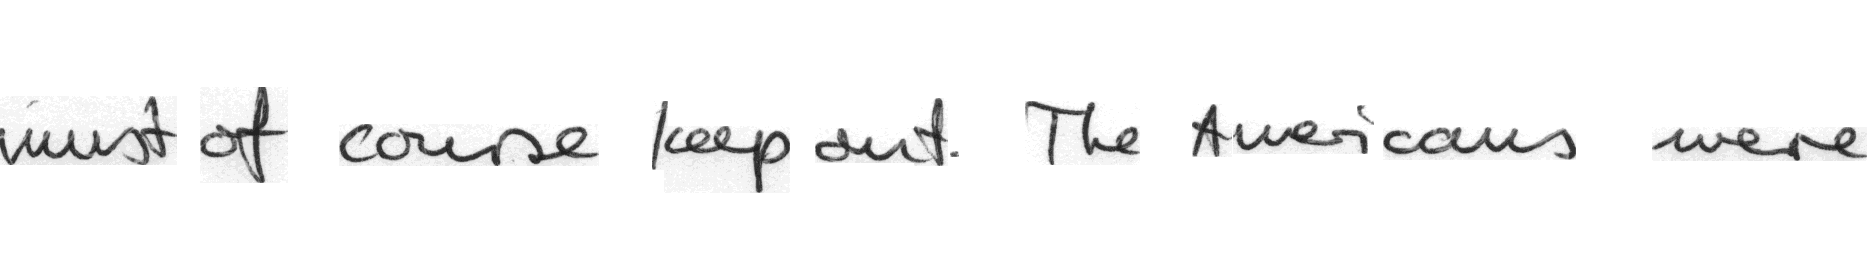 must of course keep out. The Americans were